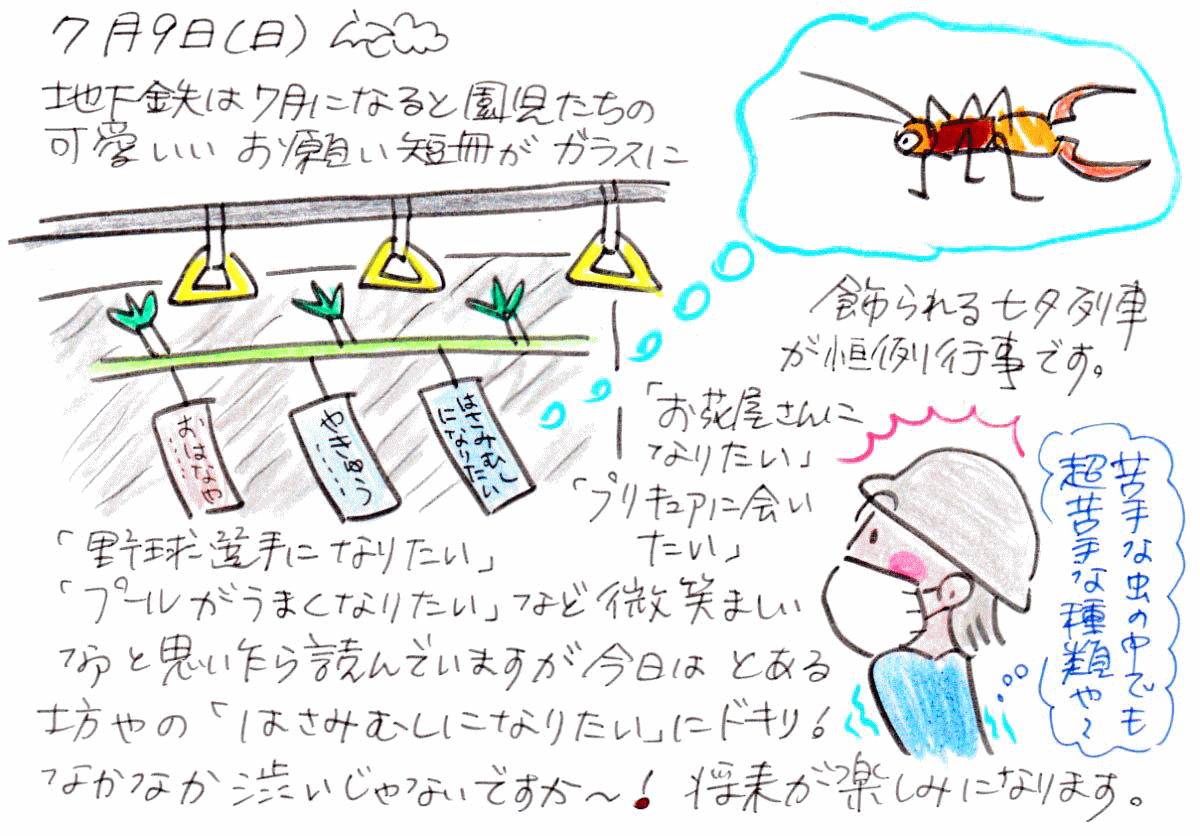 7月9日(日)
地下鉄は7月になると園児たちの
可愛いい お願い短冊が ガラスに
飾られる七夕列車
が恒例行事です。
おはなや
やきゅう
はさみむし
になりたい
「お花屋さんに
なりたい」
「プリキュアに会い
たい」
「野球選手になりたい」
「プールがうまくなりたい」など微笑ましい
なぁと思いながら読んでいますが今日は とある
坊やの「はさみむしになりたい」にドキリ!
なかなか渋いじゃないですか〜! 将来が楽しみになります。
苦手な虫の中でも
超苦手な種類や〜